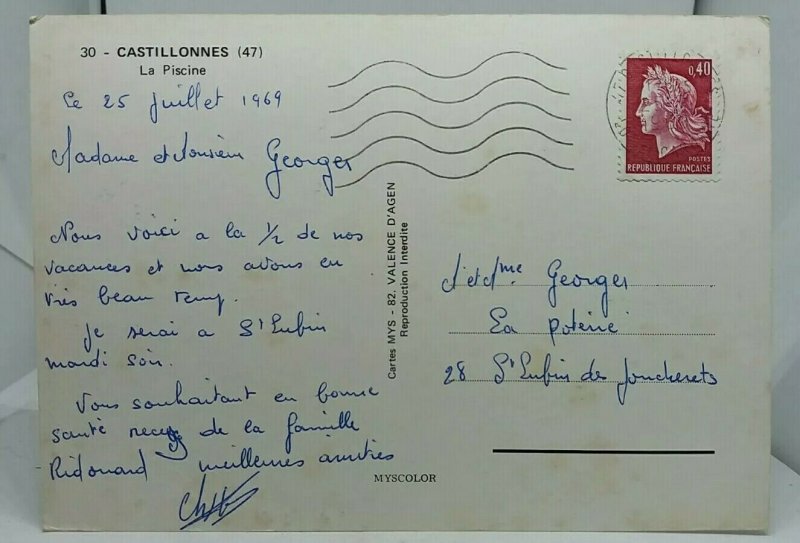 30 - CASTILLONNES (47)
La Piscine
Le 25 juillet 1969
Madame et Monsieur Georges
Nous voici a la 1/2 de nos
vacances et nous avons eu
très beau temp.
Je serai a St Lubin
mardi soir.
Vous souhaitant en bonne
santé recey de la famille
Ridouard meilleures amitiés
Cartes MYS - 82. VALENCE D'AGEN
Reproduction Interdite
MYSCOLOR
0,40
POSTES
REPUBLIQUE FRANÇAISE
et Mme Georges
La poterie
28 St Lubin des Joncherets